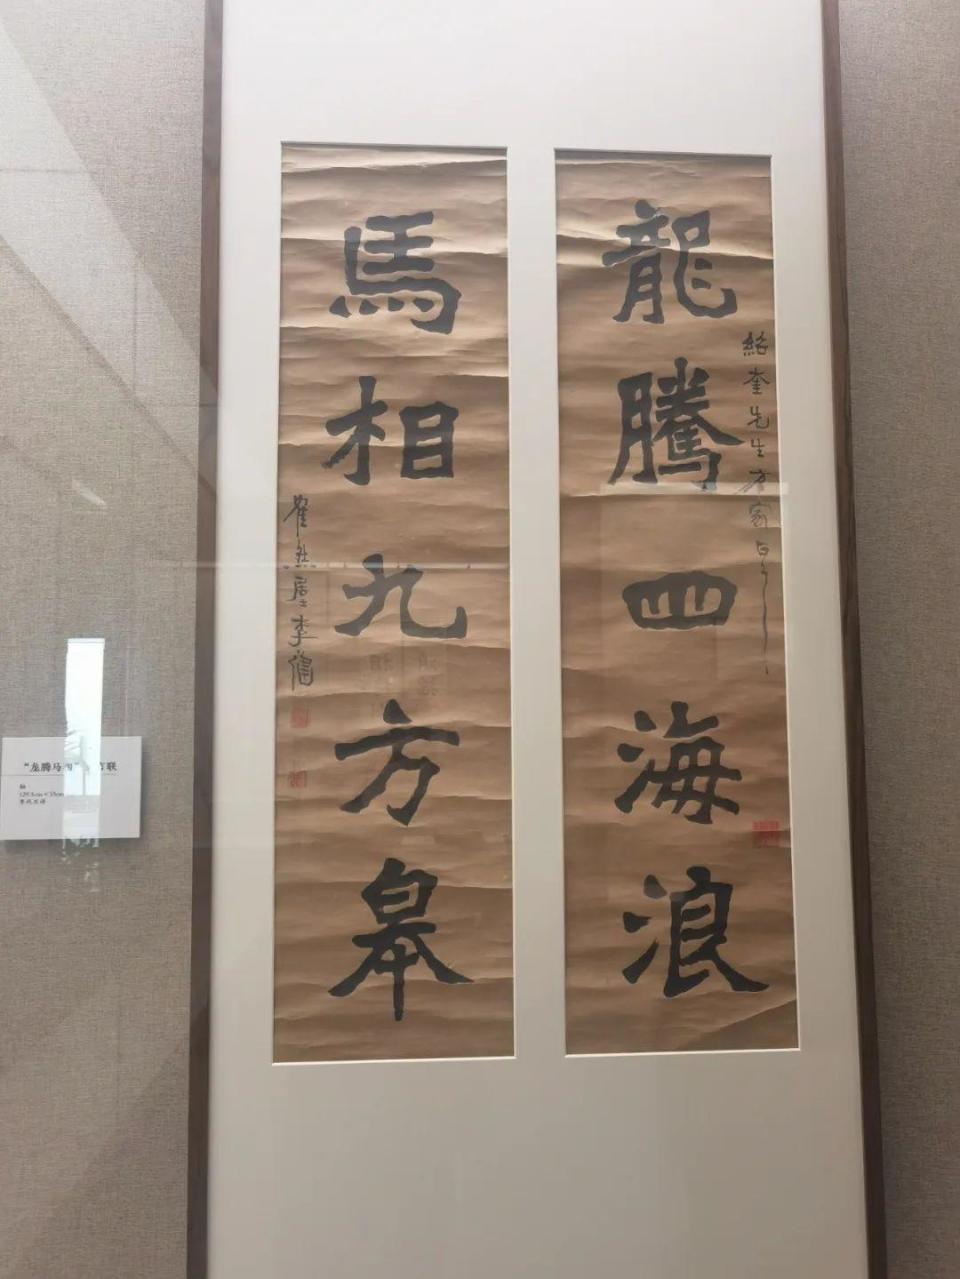 龍騰四海浪
紹奎先生方家
馬相九方皋
居士李健
"龙腾马相"